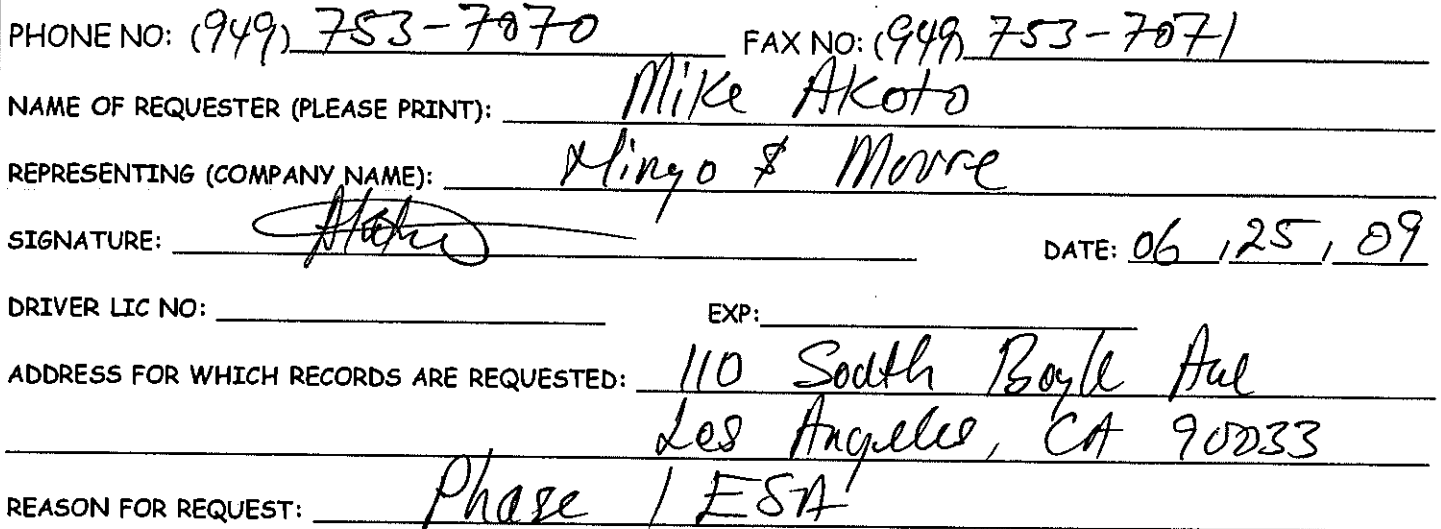 PHONE NO: (949) 753-7070 FAX NO: (949) 753-7071
NAME OF REQUESTER (PLEASE PRINT): Mike Akoto
REPRESENTING (COMPANY NAME): Mingo & Moore
SIGNATURE: Akoto DATE: 06 / 25 / 09
DRIVER LIC NO: EXP:
ADDRESS FOR WHICH RECORDS ARE REQUESTED: 110 South Boyle Ave
Los Angeles, CA 90033
REASON FOR REQUEST: Phase 1 ESA